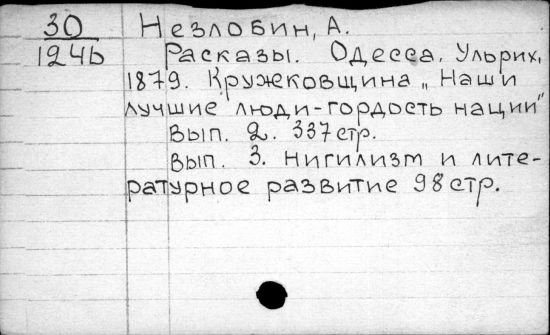 30 Незлобин, А.
124Б Расказы. Одесса, Ульрих,
1879. Кружековщина „Наши
лучшие люди-гордость нации"
Вып. 2. 337 стр.
Вып. 3. Нигилизм и лите-
ратурное развитие 98 стр.